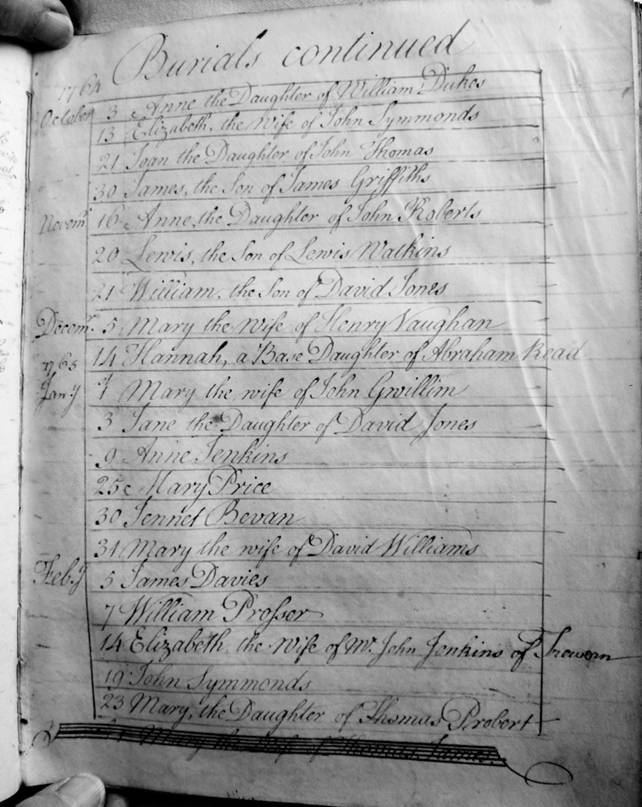 Burials continued
1764
October 3 Anne the Daughter of William Dukes
13 Elizabeth, the Wife of John Symmonds
21 Joan the Daughter of John Thomas
30 James, the Son of James Griffiths
Novemr 16 Anne, the Daughter of John Roberts
20 Lewis, the Son of Lewis Watkins
21 William, the Son of David Jones
Decemr. 5 Mary the Wife of Henry Vaughan
14 Hannah, a Base Daughter of Abraham Read
1765
Jan:y 1 Mary the wife of John Gwillim
3 Jane the Daughter of David Jones
9 Anne Jenkins
25 Mary Price
30 Jennet Bevan
31 Mary the wife of David Williams
Feb:y 5 James Davies
7 William Prosser
14 Elizabeth, the Wife of Mr. John Jenkins of
19 John Symmonds
23 Mary, the Daughter of Thomas Probert